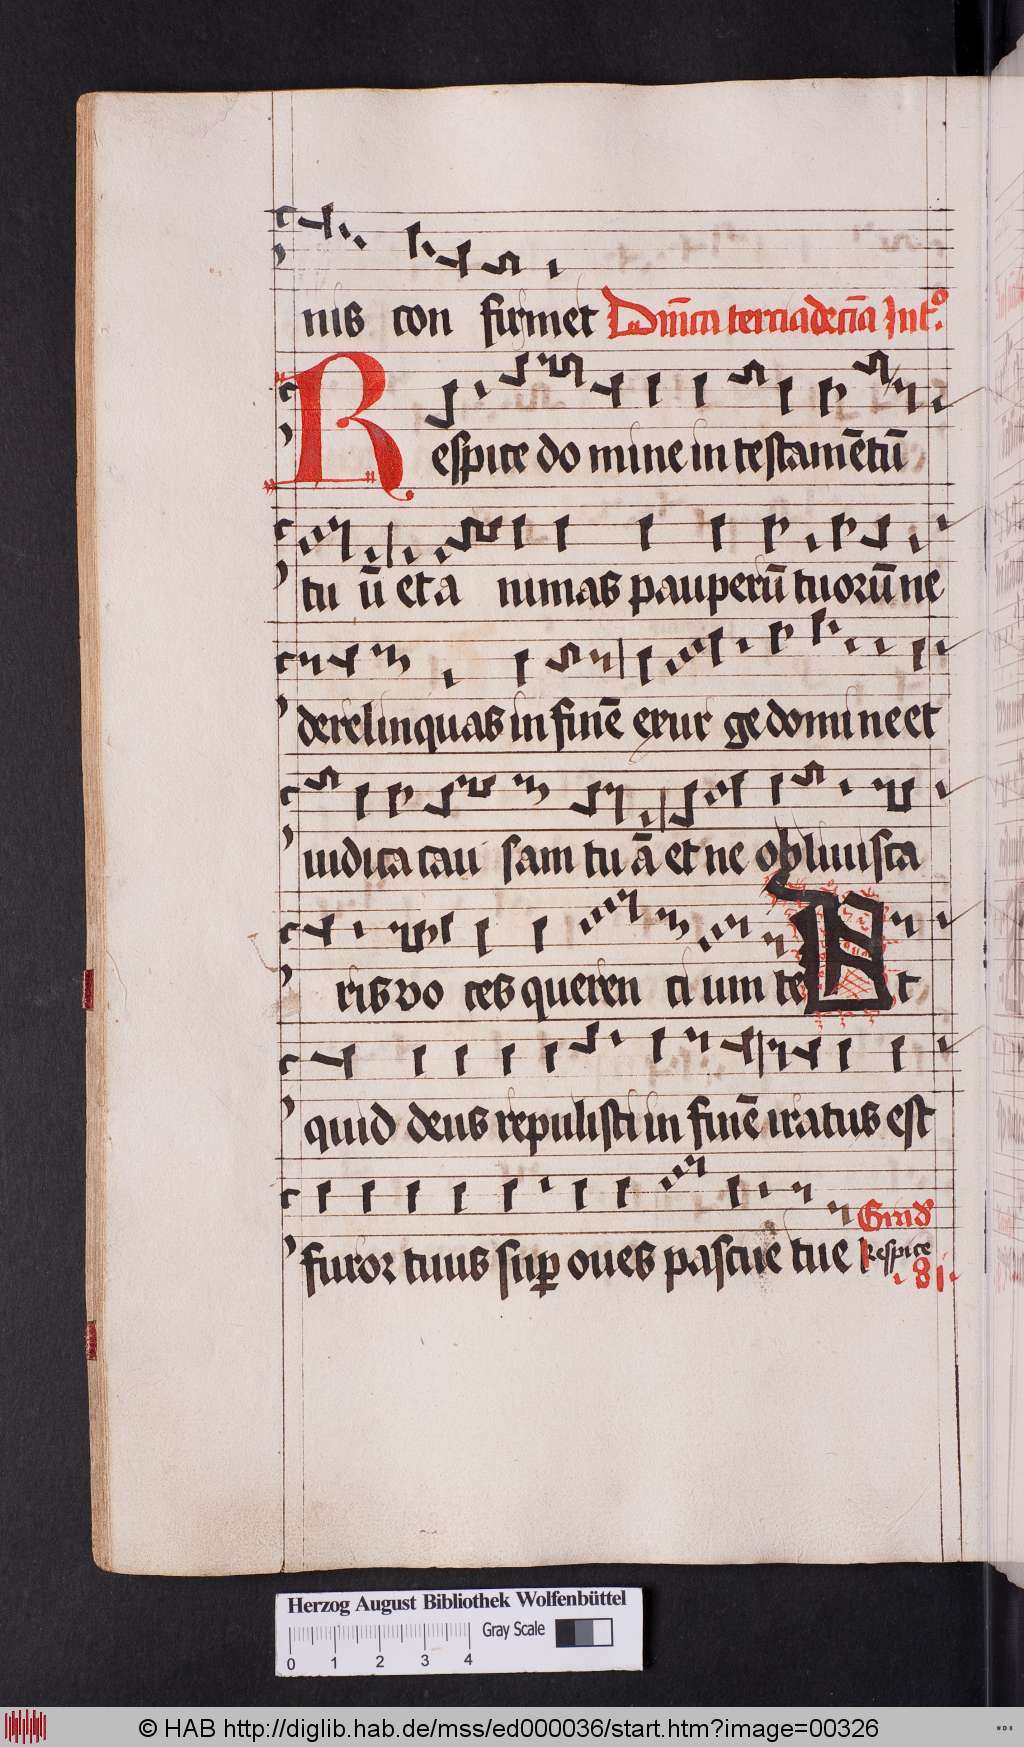 nis con firmet Dn̄ica terciadecīa Int°.
Respice do mine in testamētū
tu ū et a nimas pauperū tuorū ne
derelinquas in finē exur ge domi ne et
iudica cau sam tu ā et ne obliuisca
ris vo ces queren ti um te Vt
quid deus repulisti in finē iratus est
furor tuus sup oues pascue tue
Respice
.81.
Herzog August Bibliothek Wolfenbüttel
Gray Scale
0 1 2 3 4
© HAB http://diglib.hab.de/mss/ed000036/start.htm?image=00326